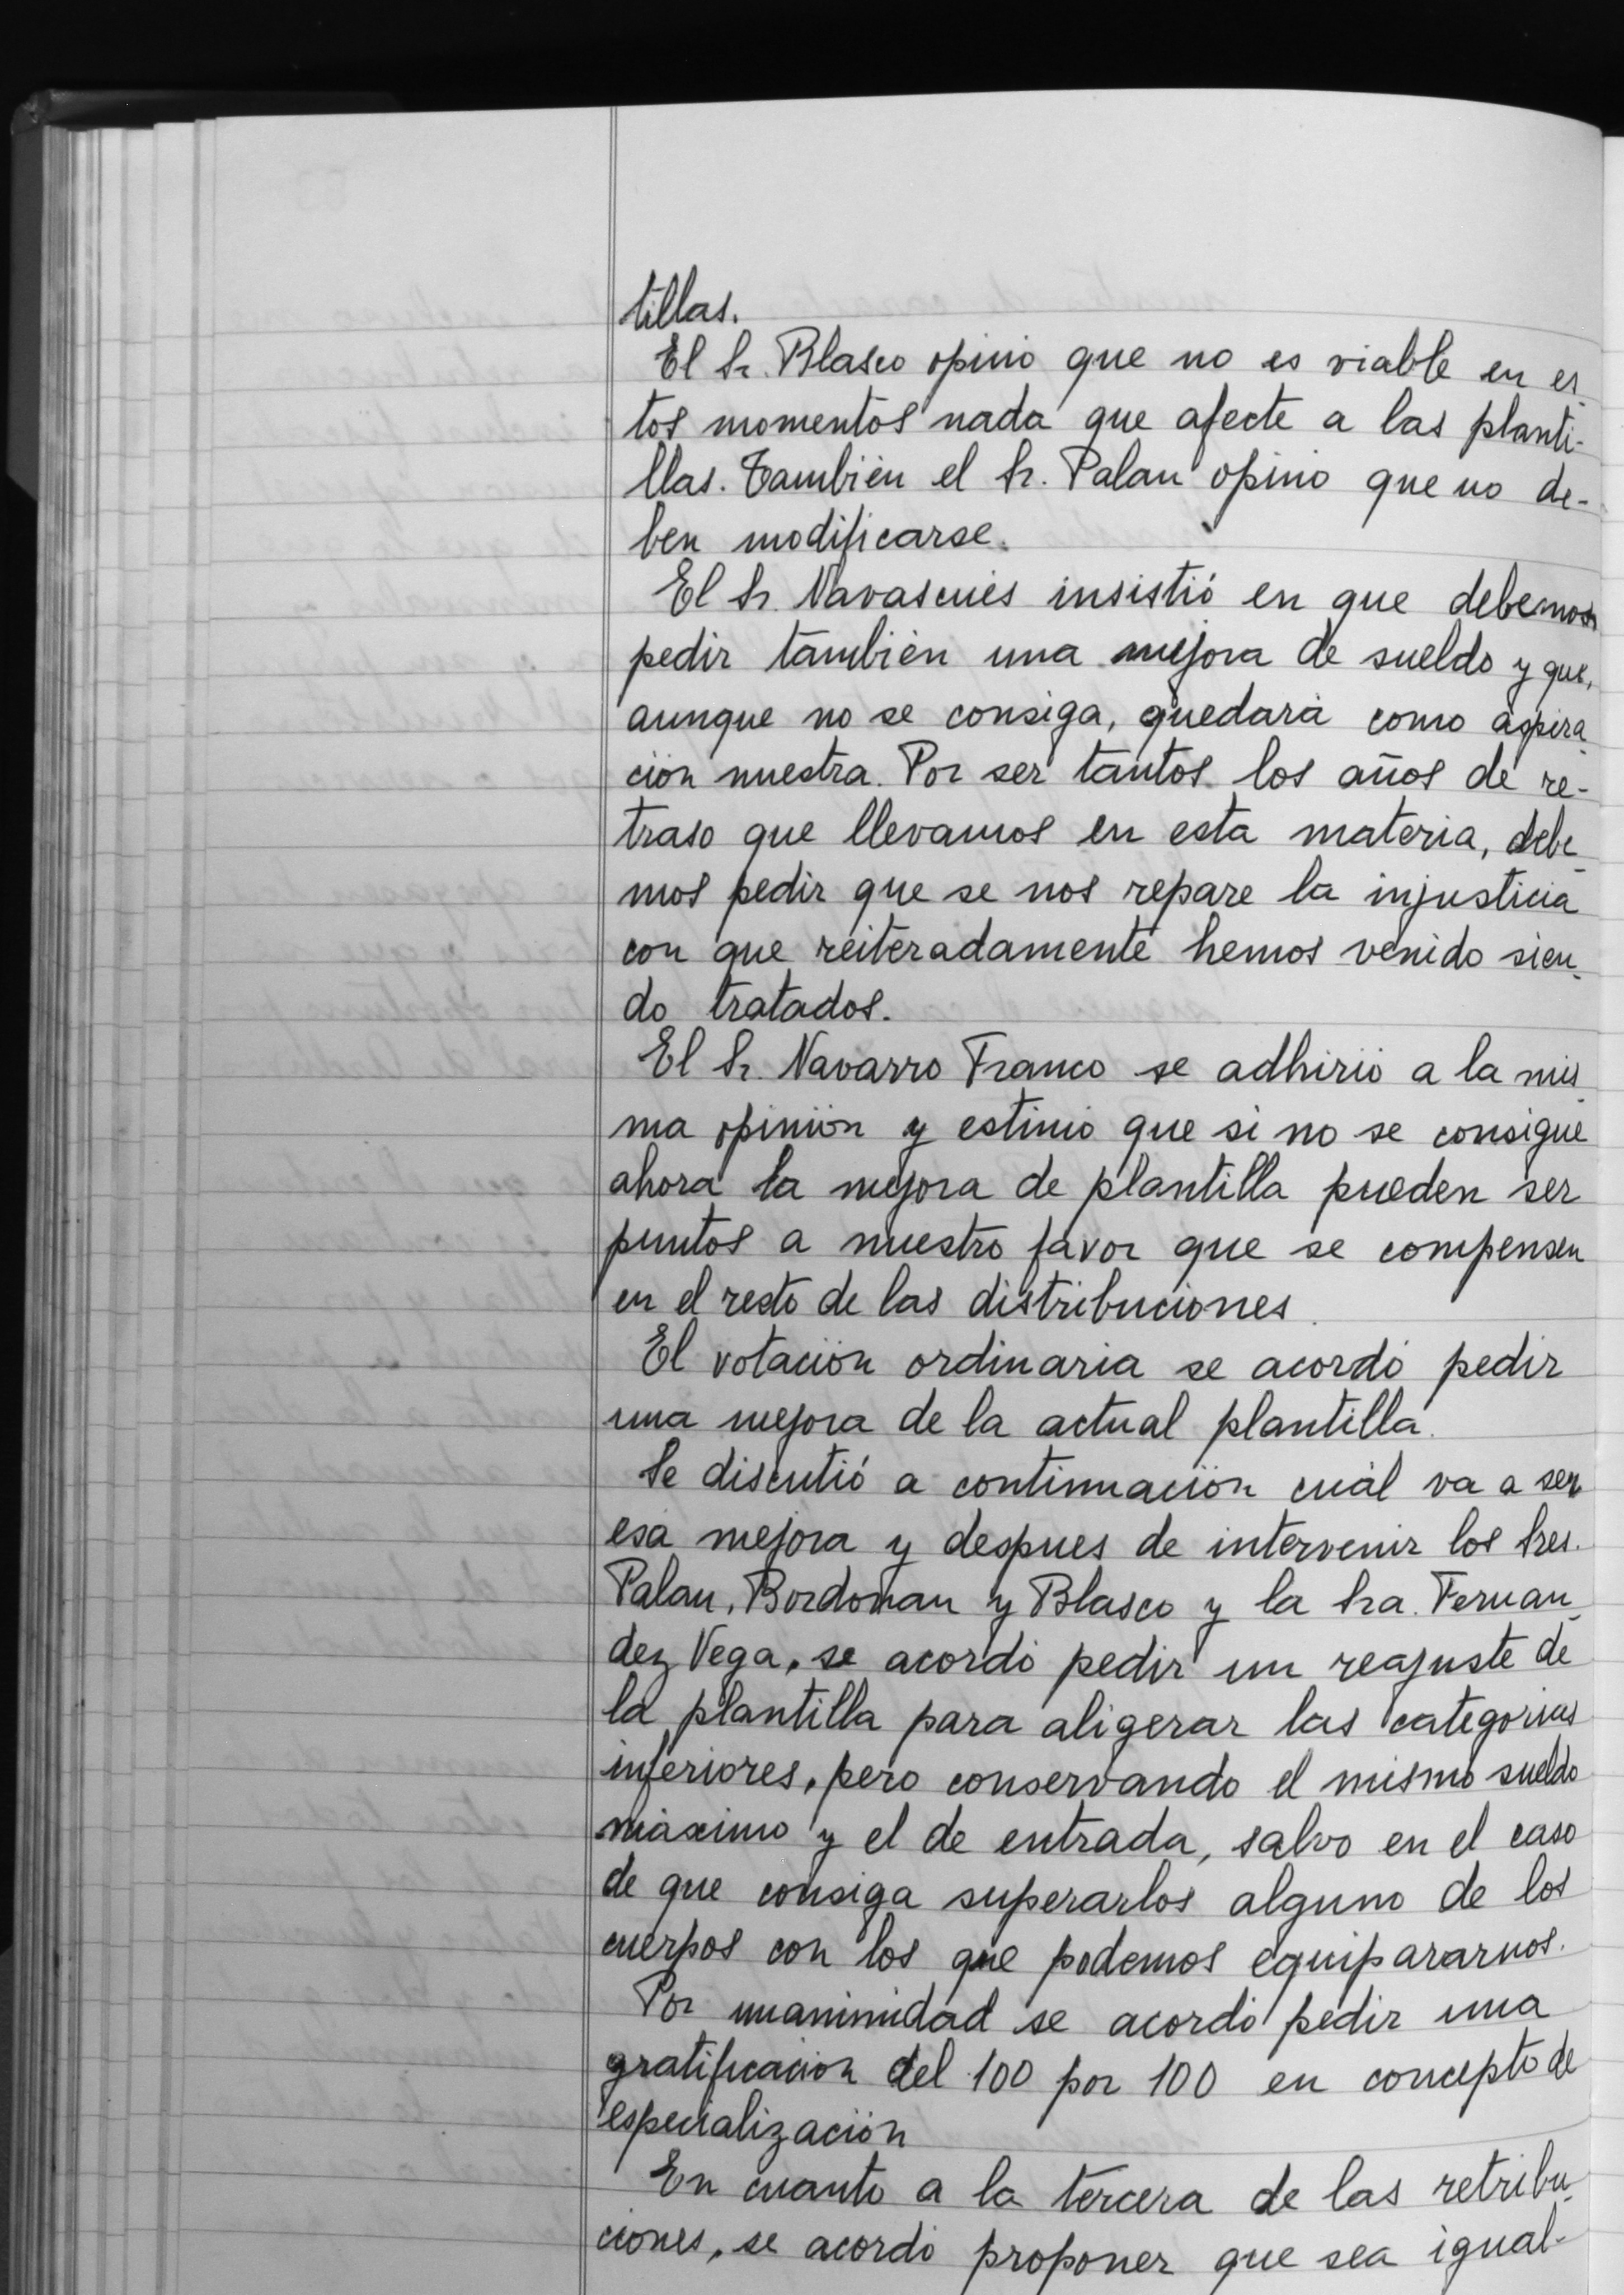 tillas.
El Sr. Blasco opinó que no es viable en es-
tos momentos nada que afecte a las planti-
llas. También el Sr. Palau opinó que no de-
ben modificarse.
El Sr. Navascués insistió en que debemos
pedir también una mejora de sueldo y que,
aunque no se consiga, quedará como aspira-
ción nuestra. Por ser tantos los años de re-
traso que llevamos en esta materia, debe-
mos pedir que se nos repare la injusticia
con que reiteradamente hemos venido sien-
do tratados.
El Sr. Navarro Franco se adhirió a la mis-
ma opinión y estimó que si no se consigue
ahora la mejora de plantilla pueden ser
puntos a nuestro favor que se compensen
en el resto de las distribuciones.
El votación ordinaria se acordó pedir
una mejora de la actual plantilla.
Se discutió a continuación cuál va a ser
esa mejora y despues de intervenir los Sres.
Palau, Bordonau y Blasco y la Sra. Fernan-
dez Vega, se acordó pedir un reajuste de
la plantilla para aligerar las categorias
inferiores, pero conservando el mismo sueldo
máximo y el de entrada, salvo en el caso
de que consiga superarlos alguno de los
cuerpos con los que podemos equipararnos.
Por unanimidad se acordó pedir una
gratificación del 100 por 100 en concepto de
especialización
En cuanto a la tercera de las retribu-
ciones, se acordó proponer que sea igual-